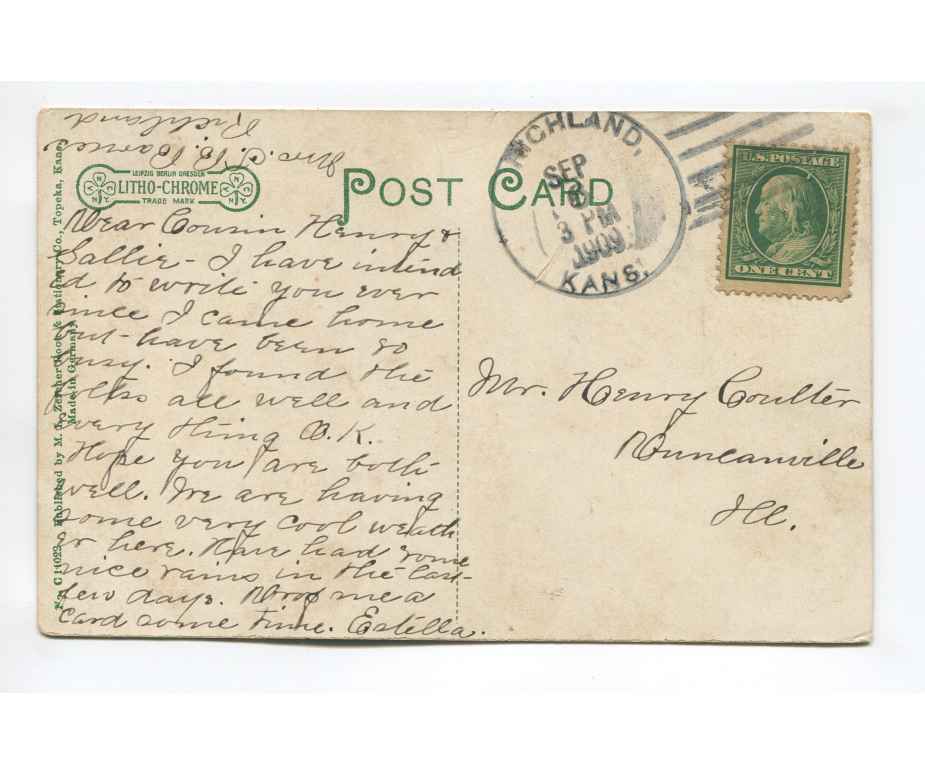 Mrs. S. B. Barnes
Richland
LEIPZIG BERLIN DRESDEN
LITHO-CHROME
TRADE MARK
N Y
N Y
POST CARD
RICHLAND,
SEP
3 PM
1909
KANS.
U.S. POSTAGE
ONE CENT
Dear Cousin Henry &
Sallie - I have intend
ed to write you ever
since I came home
but have been so
busy. I found the
folks all well and
every thing O.K.
Hope you are both
well. We are having
some very cool weath
er here. Have had some
nice rains in the last
few days. Drop me a
card some time. Estella.
Mr. Henry Coulter
Duncanville
Ill.
Published by M. Zercher Book & Stationery Co., Topeka, Kans.
Made in Germany